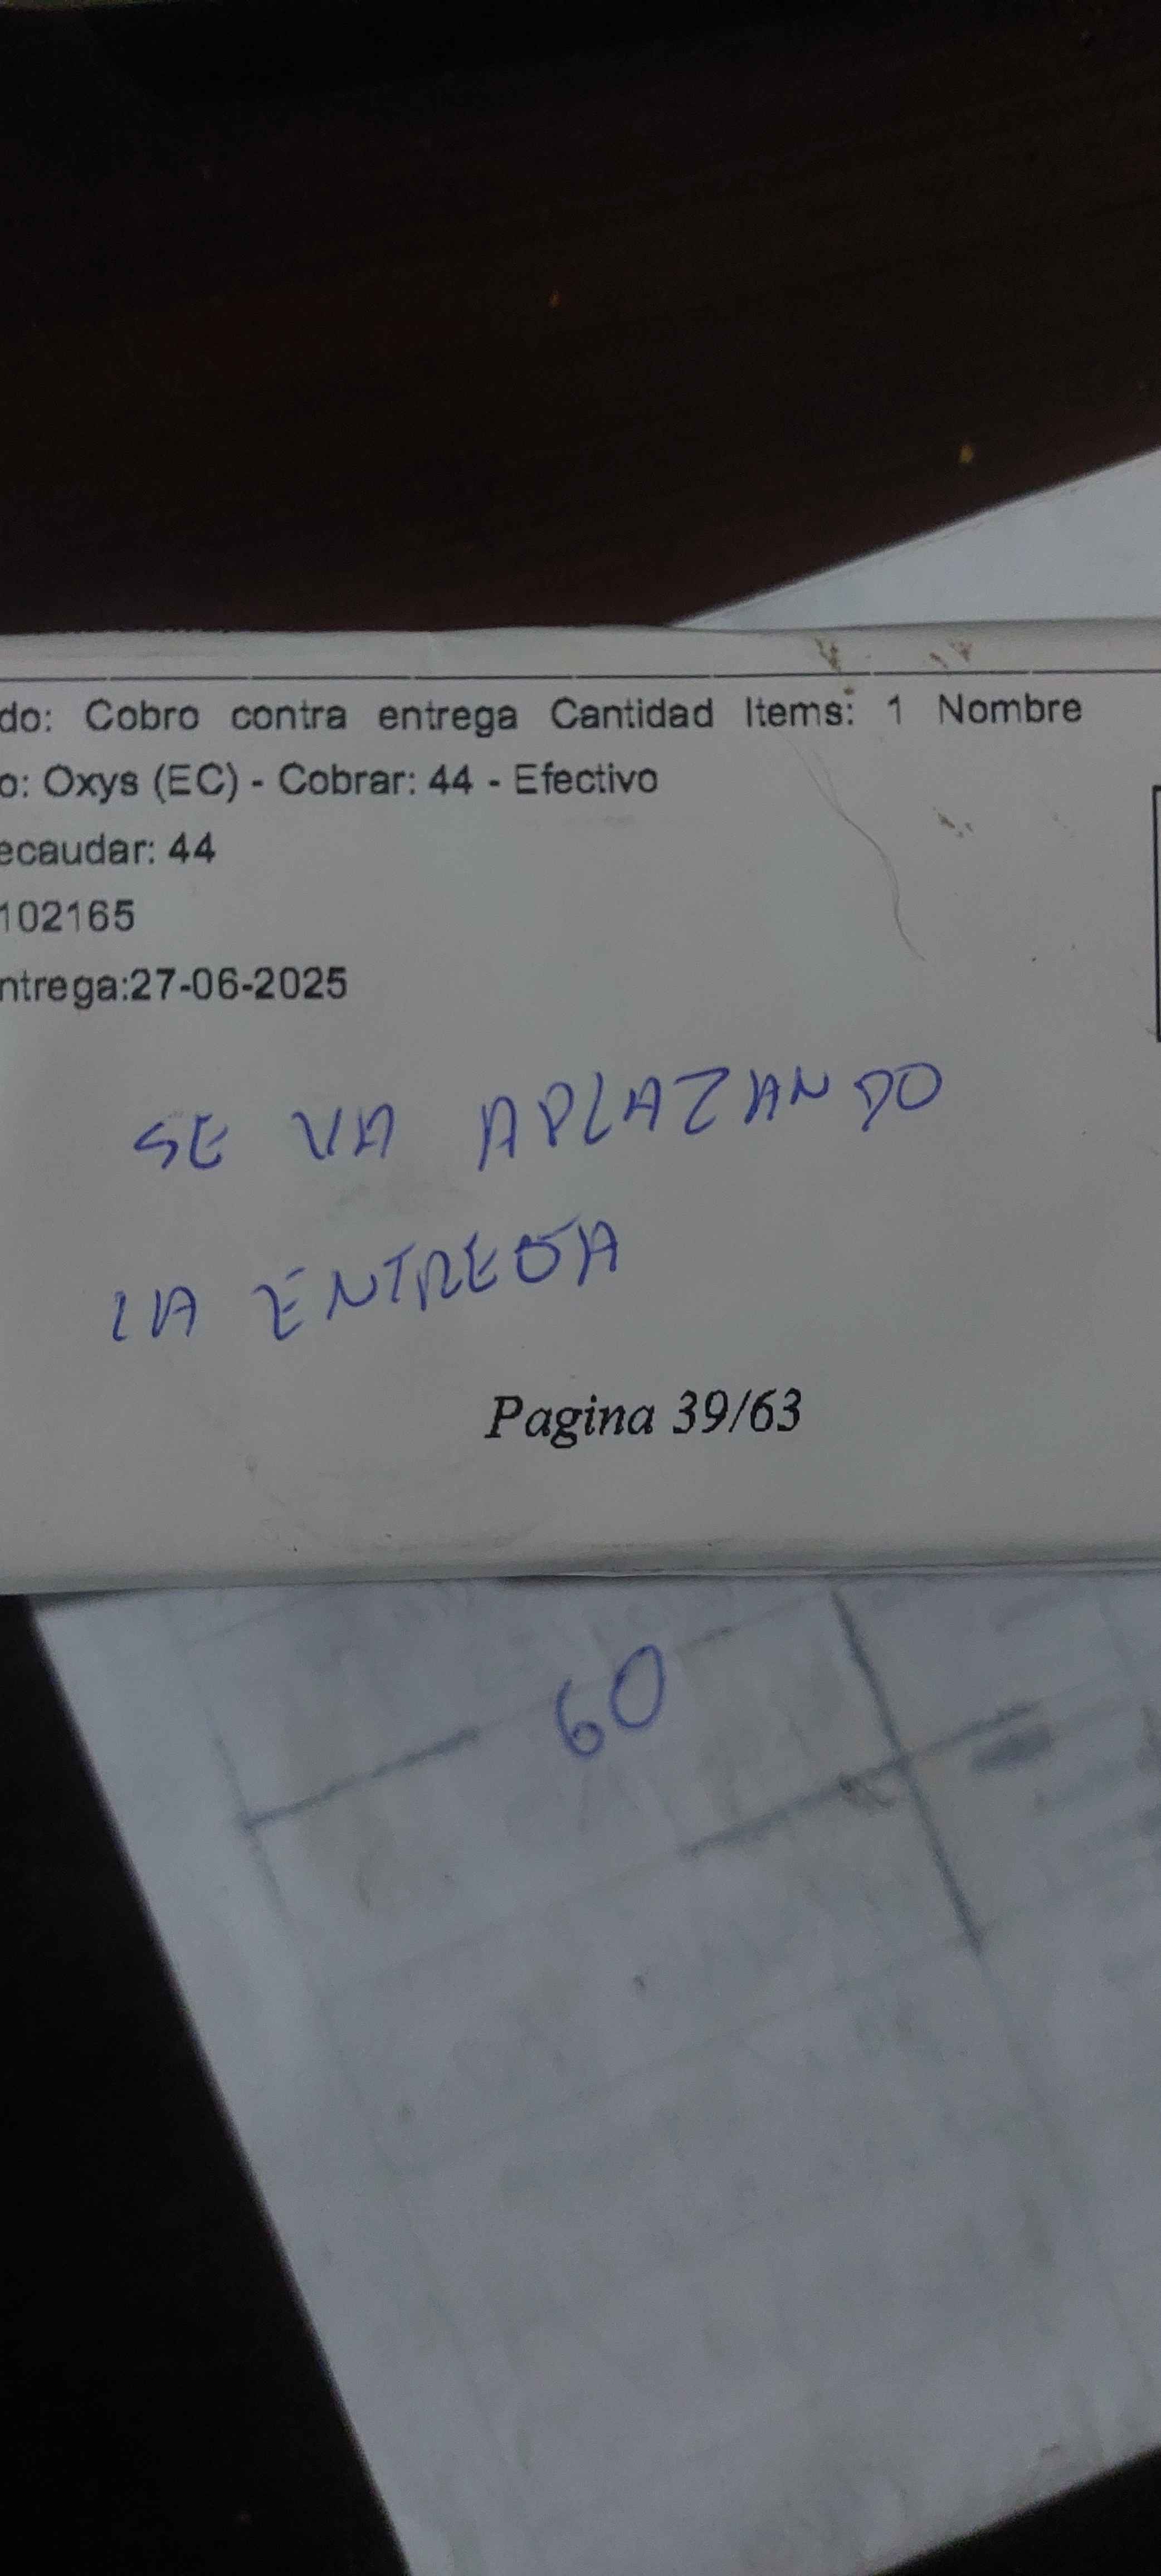 do: Cobro contra entrega Cantidad Items: 1 Nombre
o: Oxys (EC) - Cobrar: 44 - Efectivo
ecaudar: 44
102165
ntrega:27-06-2025
SE VA APLAZANDO
LA ENTREGA
Pagina 39/63
60